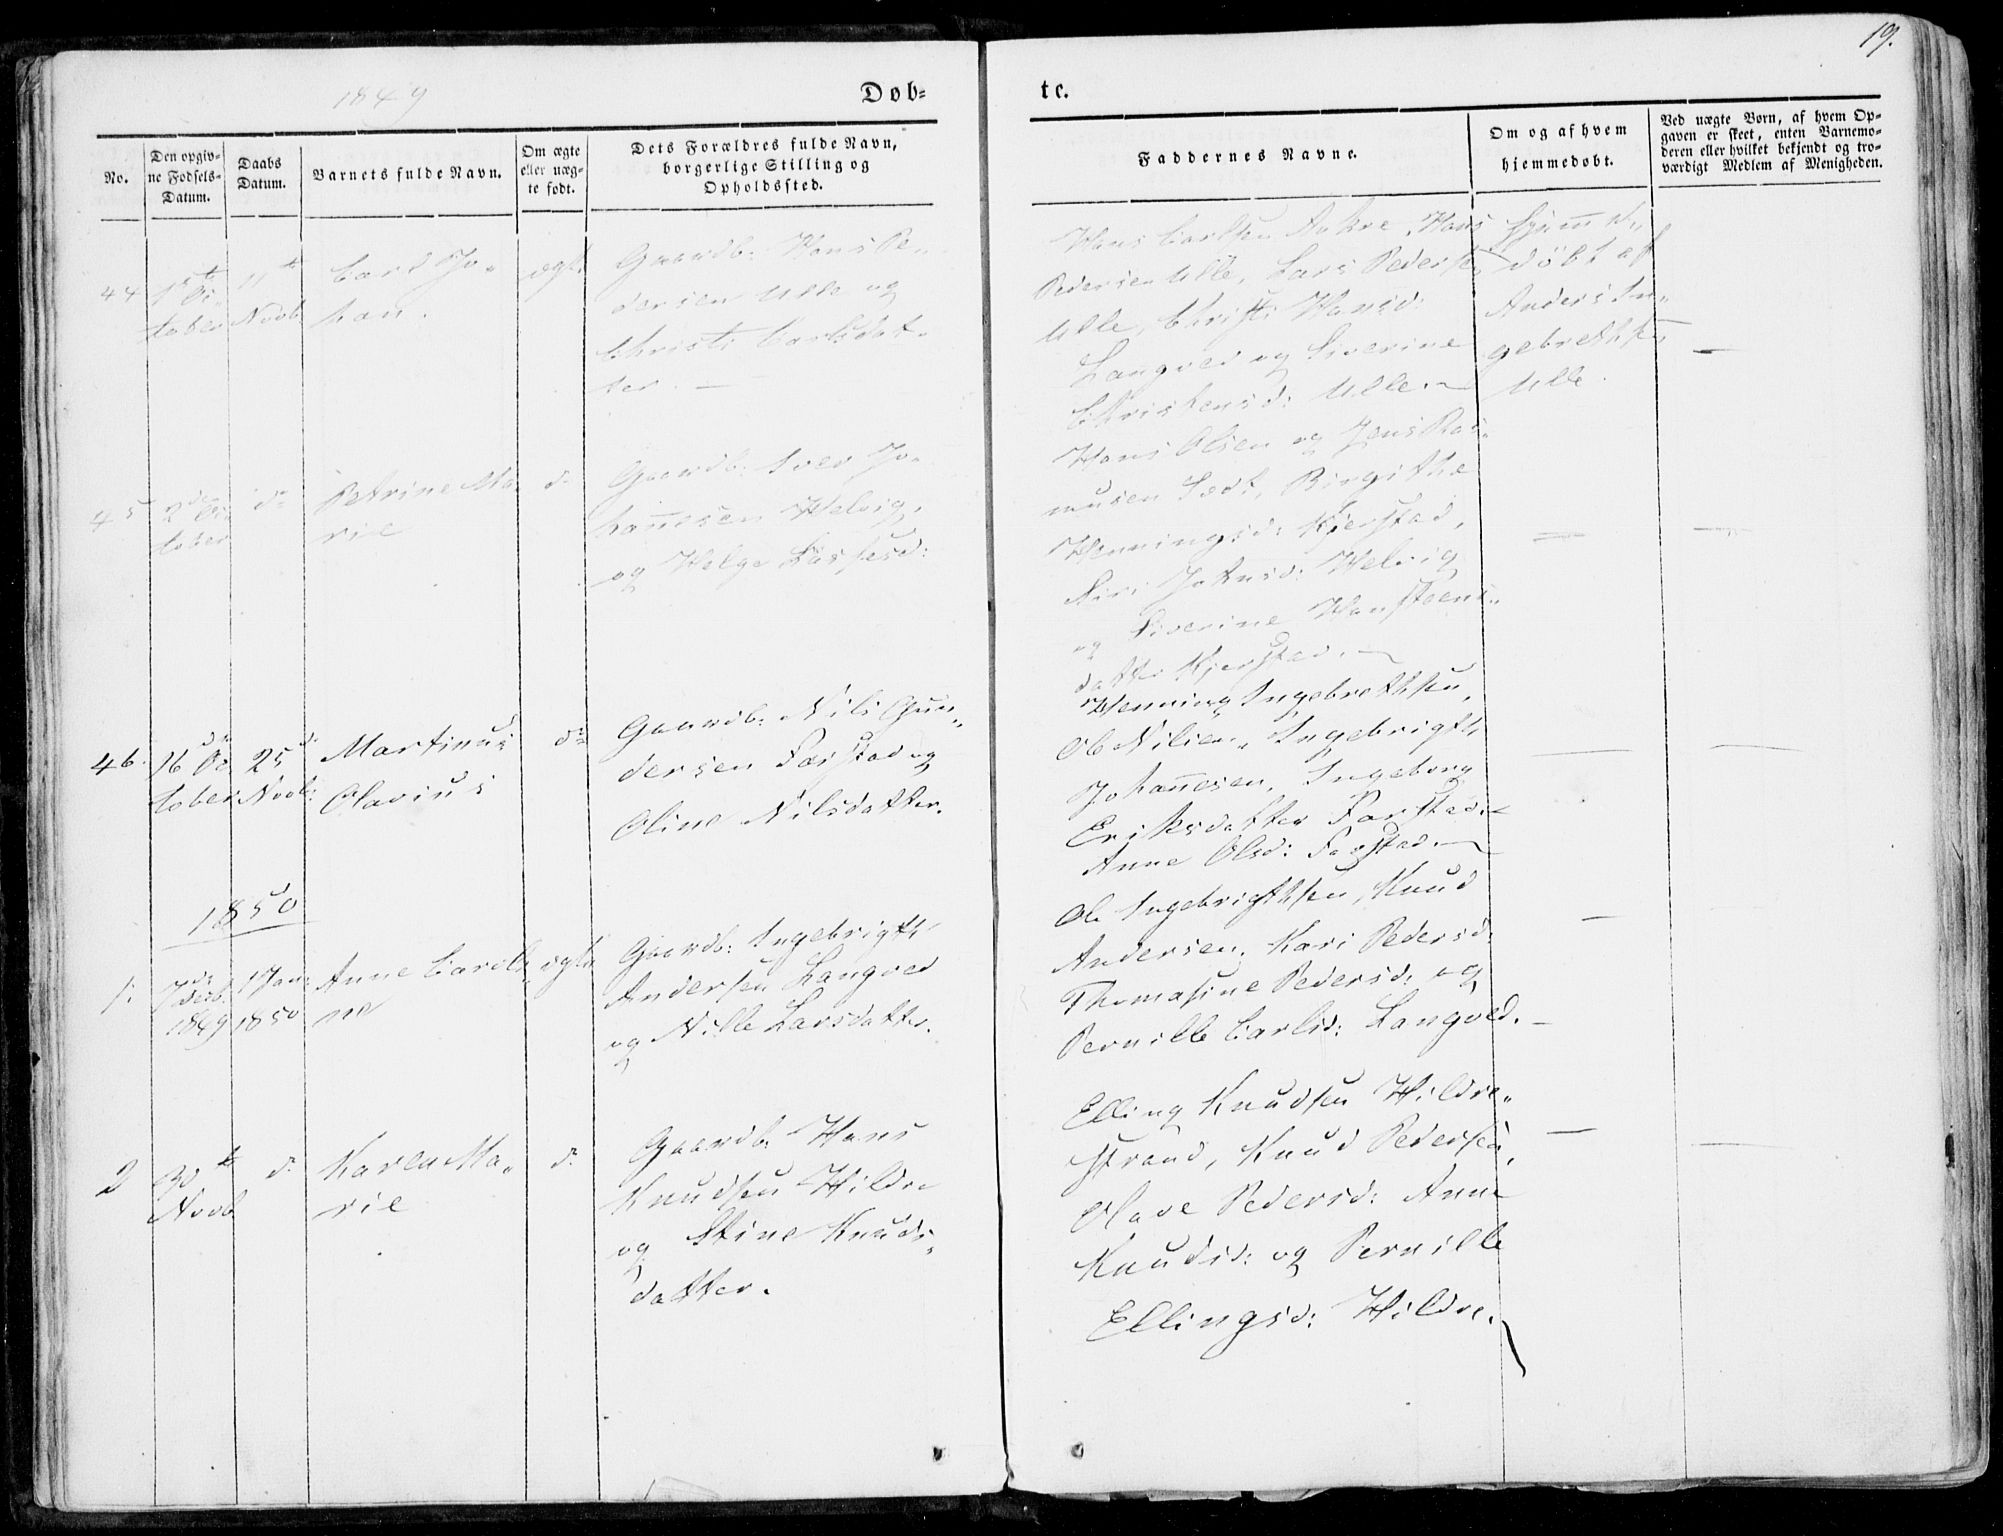 19.
1849
Døb-
te.
No.
Den opgiv-
ne Fødsels-
Datum.
Daabs
Datum.
Barnets fulde Navn.
Om ægte
eller uæg-
te født.
Dets Forældres fulde Navn,
borgerlige Stilling og
Opholdssted.
Faddernes Navne.
Om og af hvem
hjemmedøbt.
Ved uægte Børn, af hvem Op-
gaven er skeet, enten Barnemo-
deren eller hvilket bekjendt og tro-
værdigt Medlem af Menigheden.
44
1ste Oc-
tober
11te
Novb.
Carl Jo-
han.
ægte
Gaardb: Hans Pe-
dersen Ulle og
Christi Carlsdat-
ter. —
Hans Carlsen Aakre, Hans
Pedersen Ulle, Lars Pedersen
Ulle, Christi Hansd:
Langved og Siverine
Christensd: Ulle. —
Hjemme-
døbt af
Anders In-
gebrethsen
Ulle.
—
45
2den Oc-
tober
do
Petrine Ma-
rie
do
Gaardb: Iver Jo-
hannesen Helvig,
og Helge Lassesd:
Hans Olsen og Jens Ras-
musen Sædt, Birgithe
Henningsd: Kjerstad,
Siri Johnsd: Helvig
og Siverine Hansteens-
datter Kjerstad. —
—
—
46.
16de Oc-
tober
25de
Novb:
Martinus
Olavius
do
Gaardb: Nils Gun-
dersen Farstad og
Oline Nilsdatter.
Henning Ingebrethsen,
Ole Nilsen, Ingebrigth
Johannesen, Ingeborg
Eriksdatter Farstad. —
Anne Olsd: Farstad. —
—
—
1850
1.
7de
Decb.
1849
1 Jan:
1850
Anne Caroli-
ne
ægte
Gaardb: Ingebrigth
Andersen Langved
og Nille Larsdatter.
Ole Ingebrigthsen, Knud
Andersen, Kari Pedersd:
Thomasine Pedersd: og
Pernille Carlsd: Langved. —
—
2
30te
Novb.
do
Karen Ma-
rie
do
Gaardb: Hans
Knudsen Hildre
og Stine Knuds-
datter.
Elling Knudsen Hildre-
strand, Knud Pedersen,
Olave Pedersd: Anne
Knudsd: og Pernille
Ellingsd: Hildre.
—